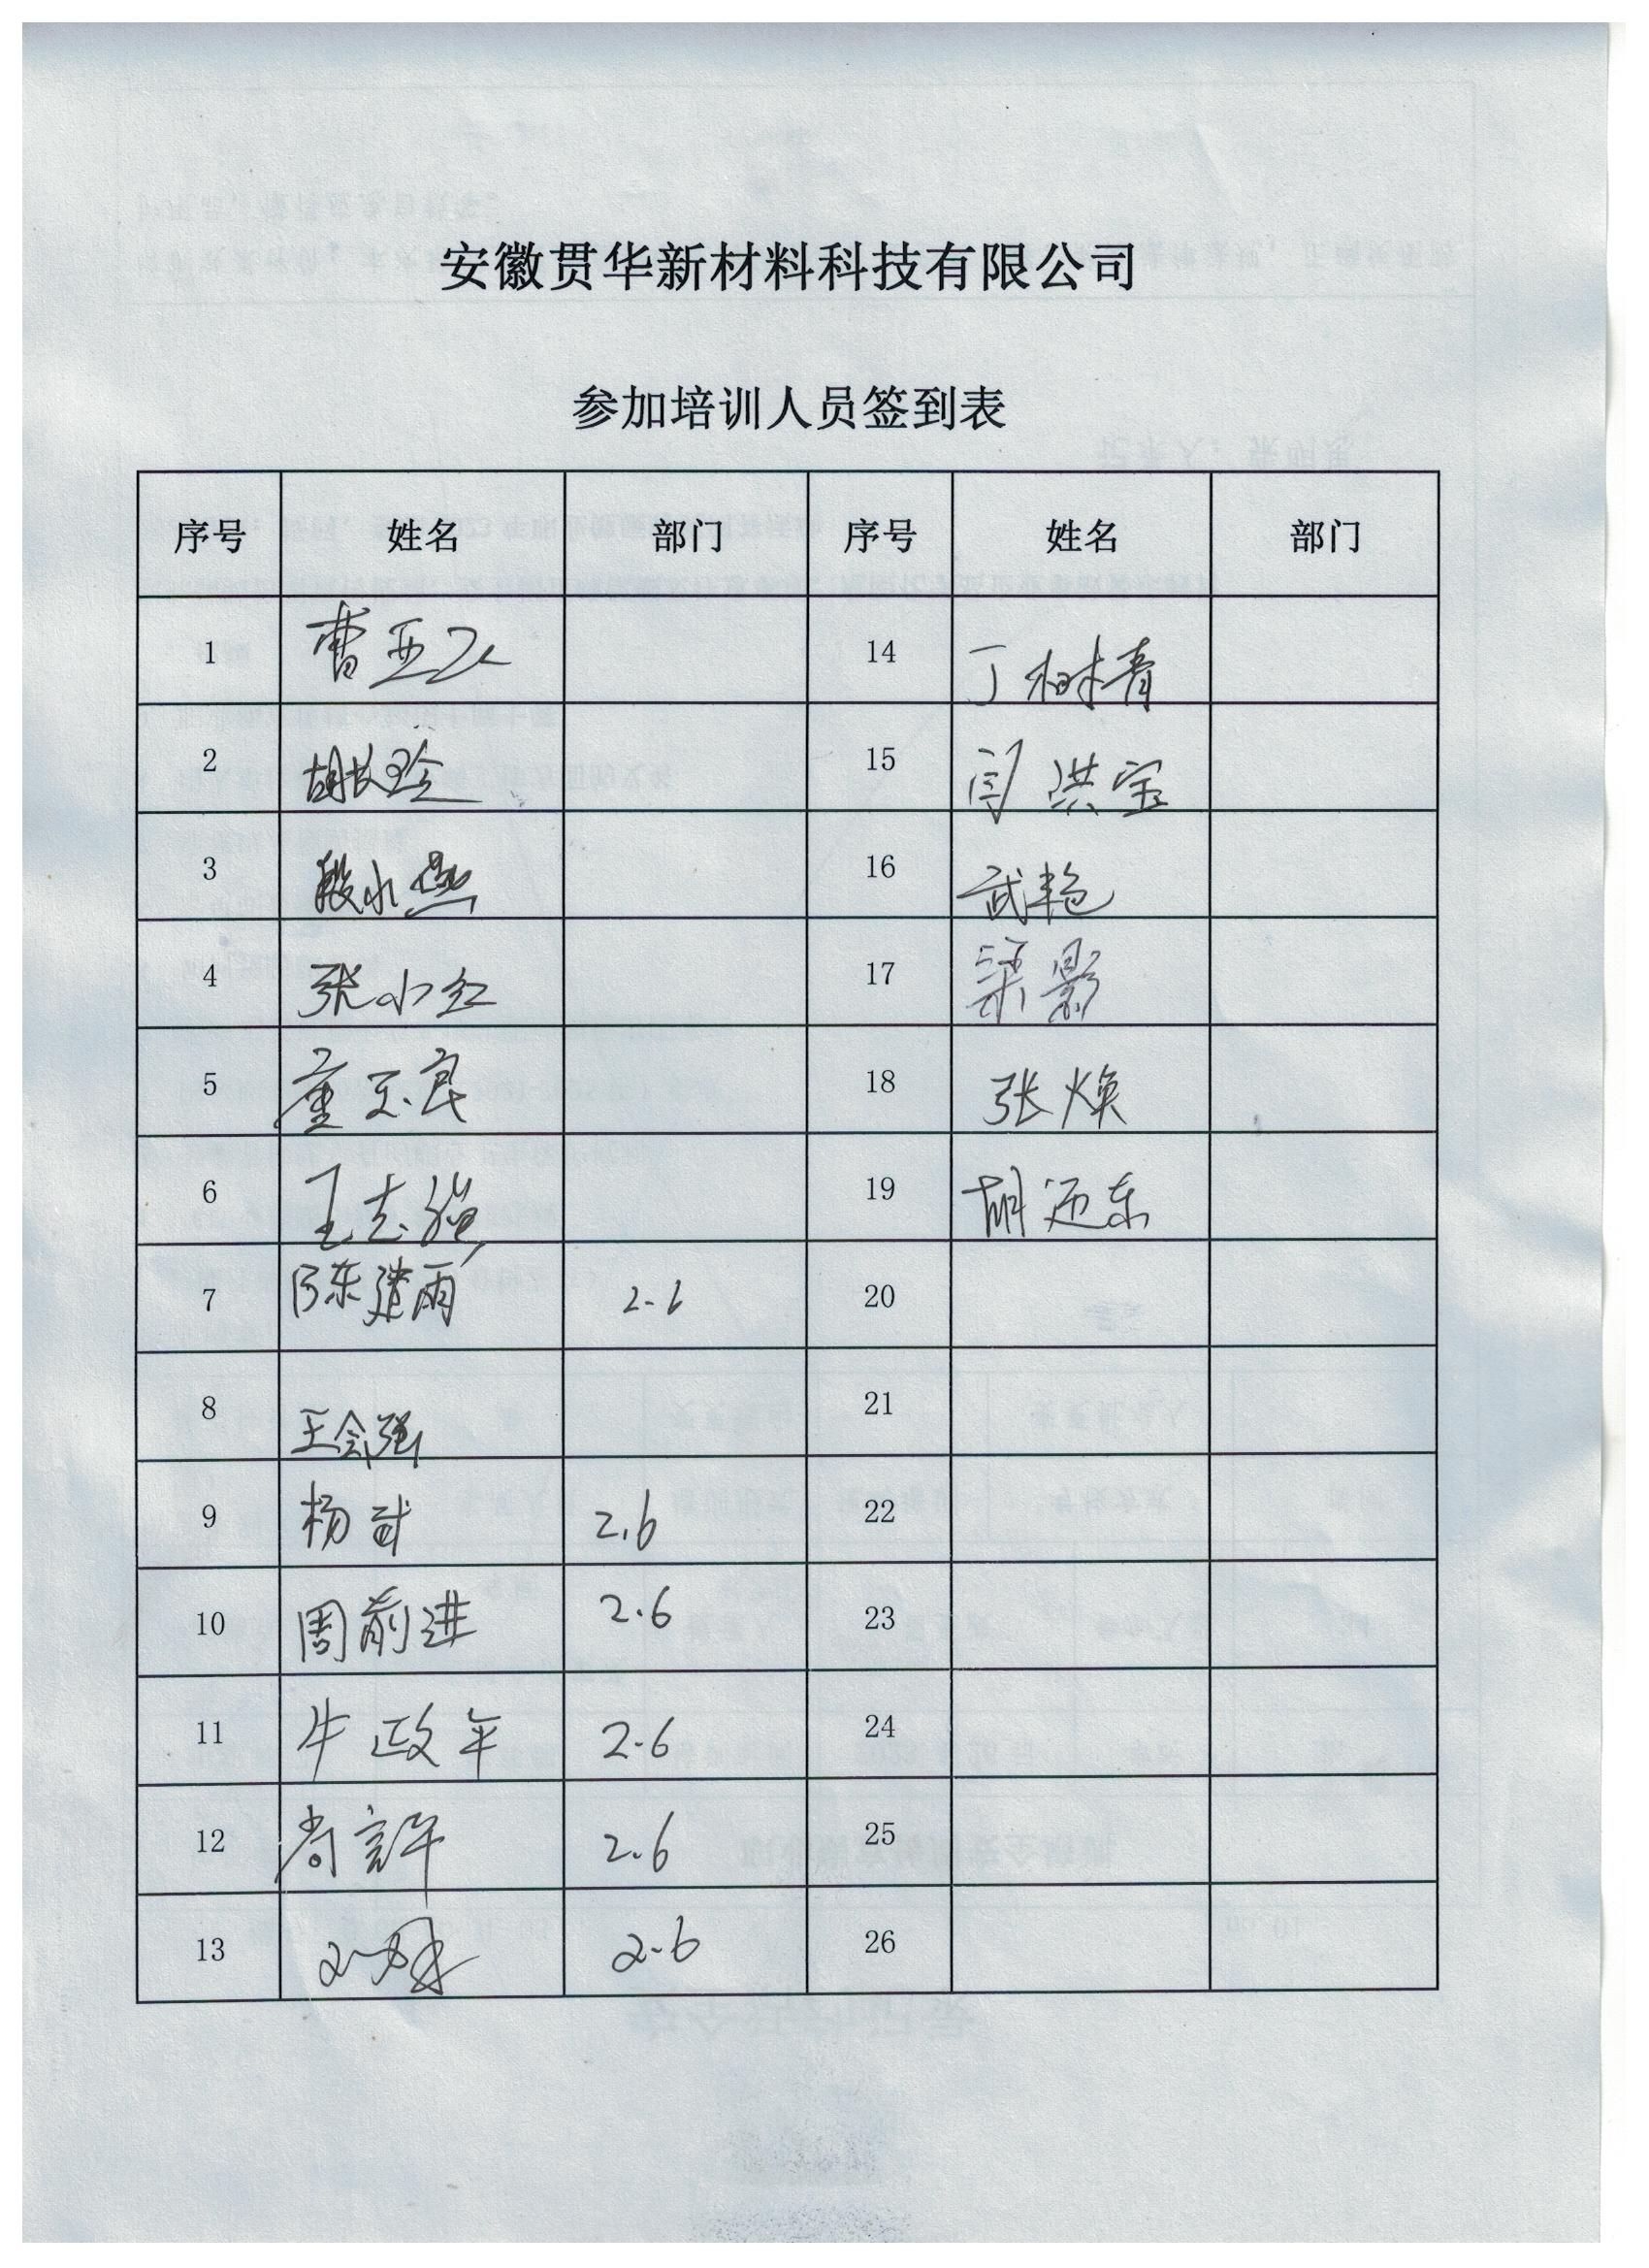 安徽贯华新材料科技有限公司
参加培训人员签到表
序号 姓名 部门 序号 姓名 部门
1 曹亚 14 丁树青
2 胡 15 闫洪宝
3 段小燕 16 武艳
4 张小红 17 梁影
5 董玉良 18 张焕
6 王志强 19 胡迎东
7 陈建雨 2.6 20
8 王会强 21
9 杨 2.6 22
10 周前进 2.6 23
11 牛政年 2.6 24
12 尚 2.6 25
13 2.6 26